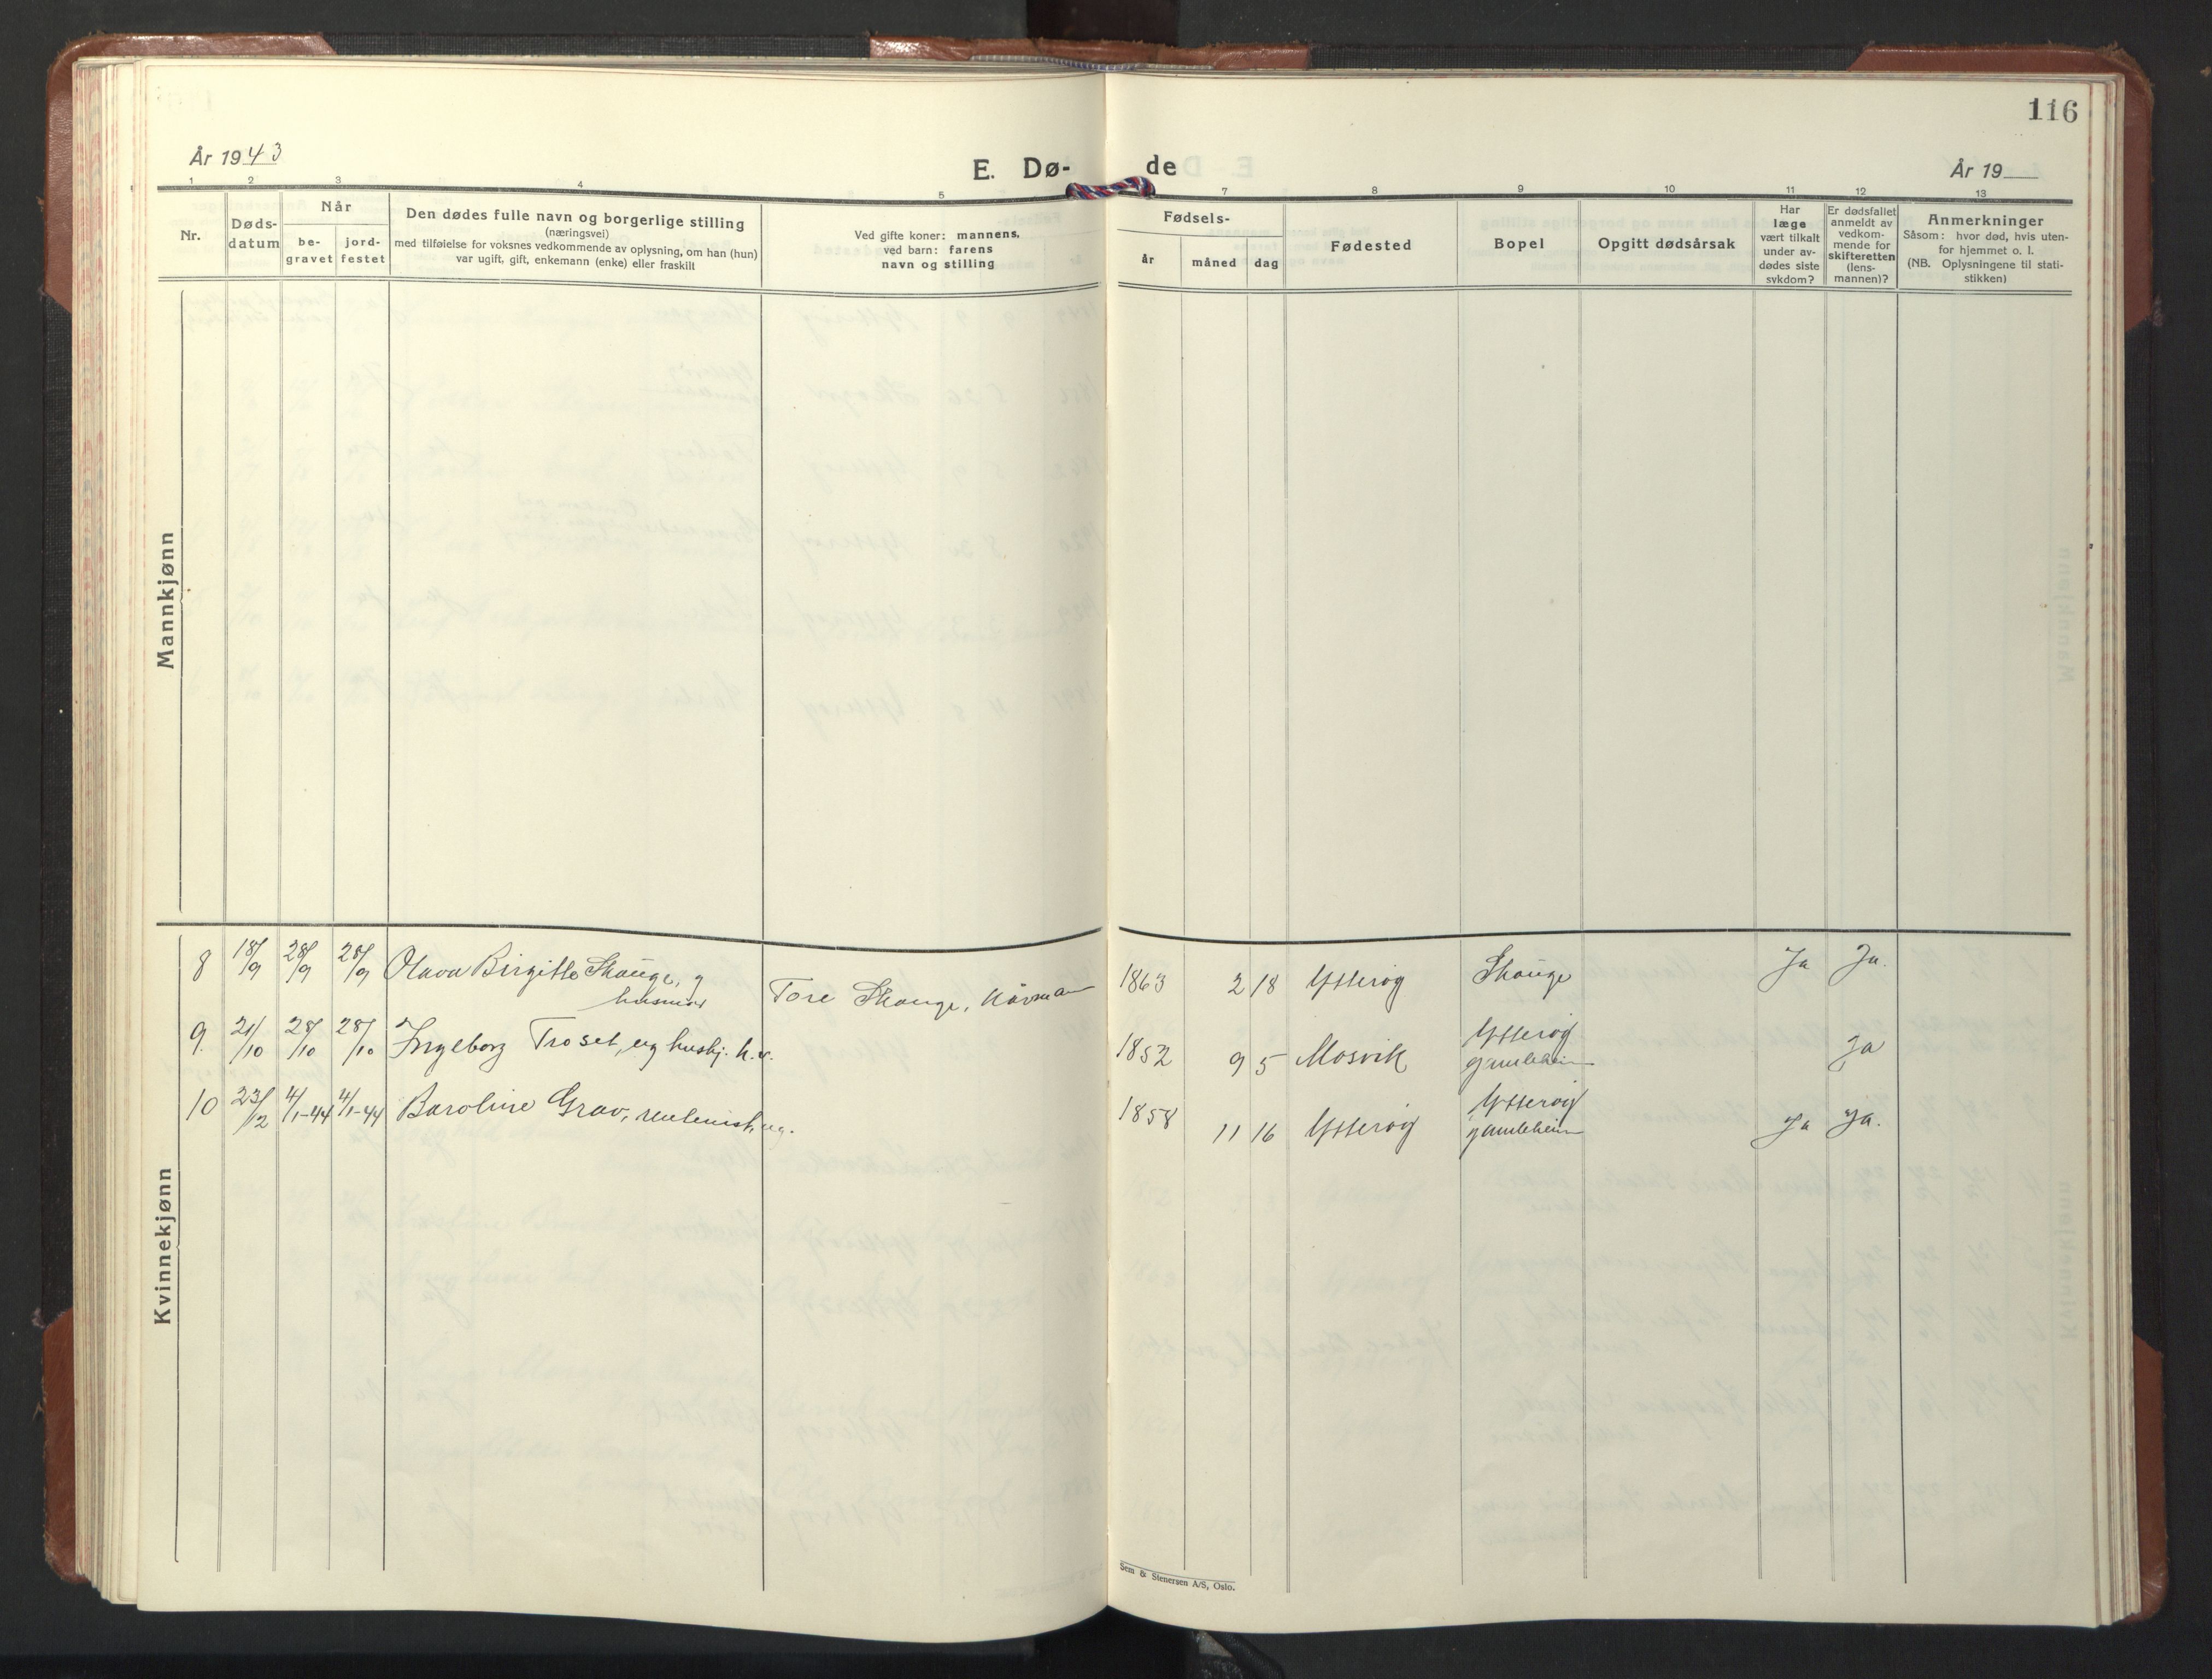 116
År 1943
E. Dø-
de
År 19
1 2 3 4 5 7 8 9 10 11 12 13
Nr.
Døds-
datum
Når
be-
gravet
jord-
festet
Den dødes fulle navn og borgerlige stilling
(næringsvei)
med tilføielse for voksnes vedkommende av oplysning, om han (hun)
var ugift, gift, enkemann (enke) eller fraskilt
Ved gifte koner: mannens,
ved barn: farens
navn og stilling
Fødsels-
år
måned
dag
Fødested
Bopel
Opgitt dødsårsak
Har
læge
vært tilkalt
under av-
dødes siste
sykdom?
Er dødsfallet
anmeldt av
vedkom-
mende for
skifteretten
(lens-
mannen)?
Anmerkninger
Såsom: hvor død, hvis uten-
for hjemmet o. l.
(NB. Oplysningene til stati-
stikken)
Mannkjønn
Kvinnekjønn
8 18/9 28/9 28/9 Olava Birgitte Skauge, g
husmor Tore Skauge, kårmann 1863 2 18 Ytterøy Skauge Ja Ja.
9. 21/10 28/10 28/10 Ingeborg Troset, ug husbj. 1852 9 5 Mosvik Ytterøy
gamleheim Ja
10 23/12 4/1-44 4/1-44 Baroline Grav, ug. 1858 11 16 Ytterøy Ytterøy
gamleheim Ja Ja.
Sem & Stenersen A/S, Oslo.